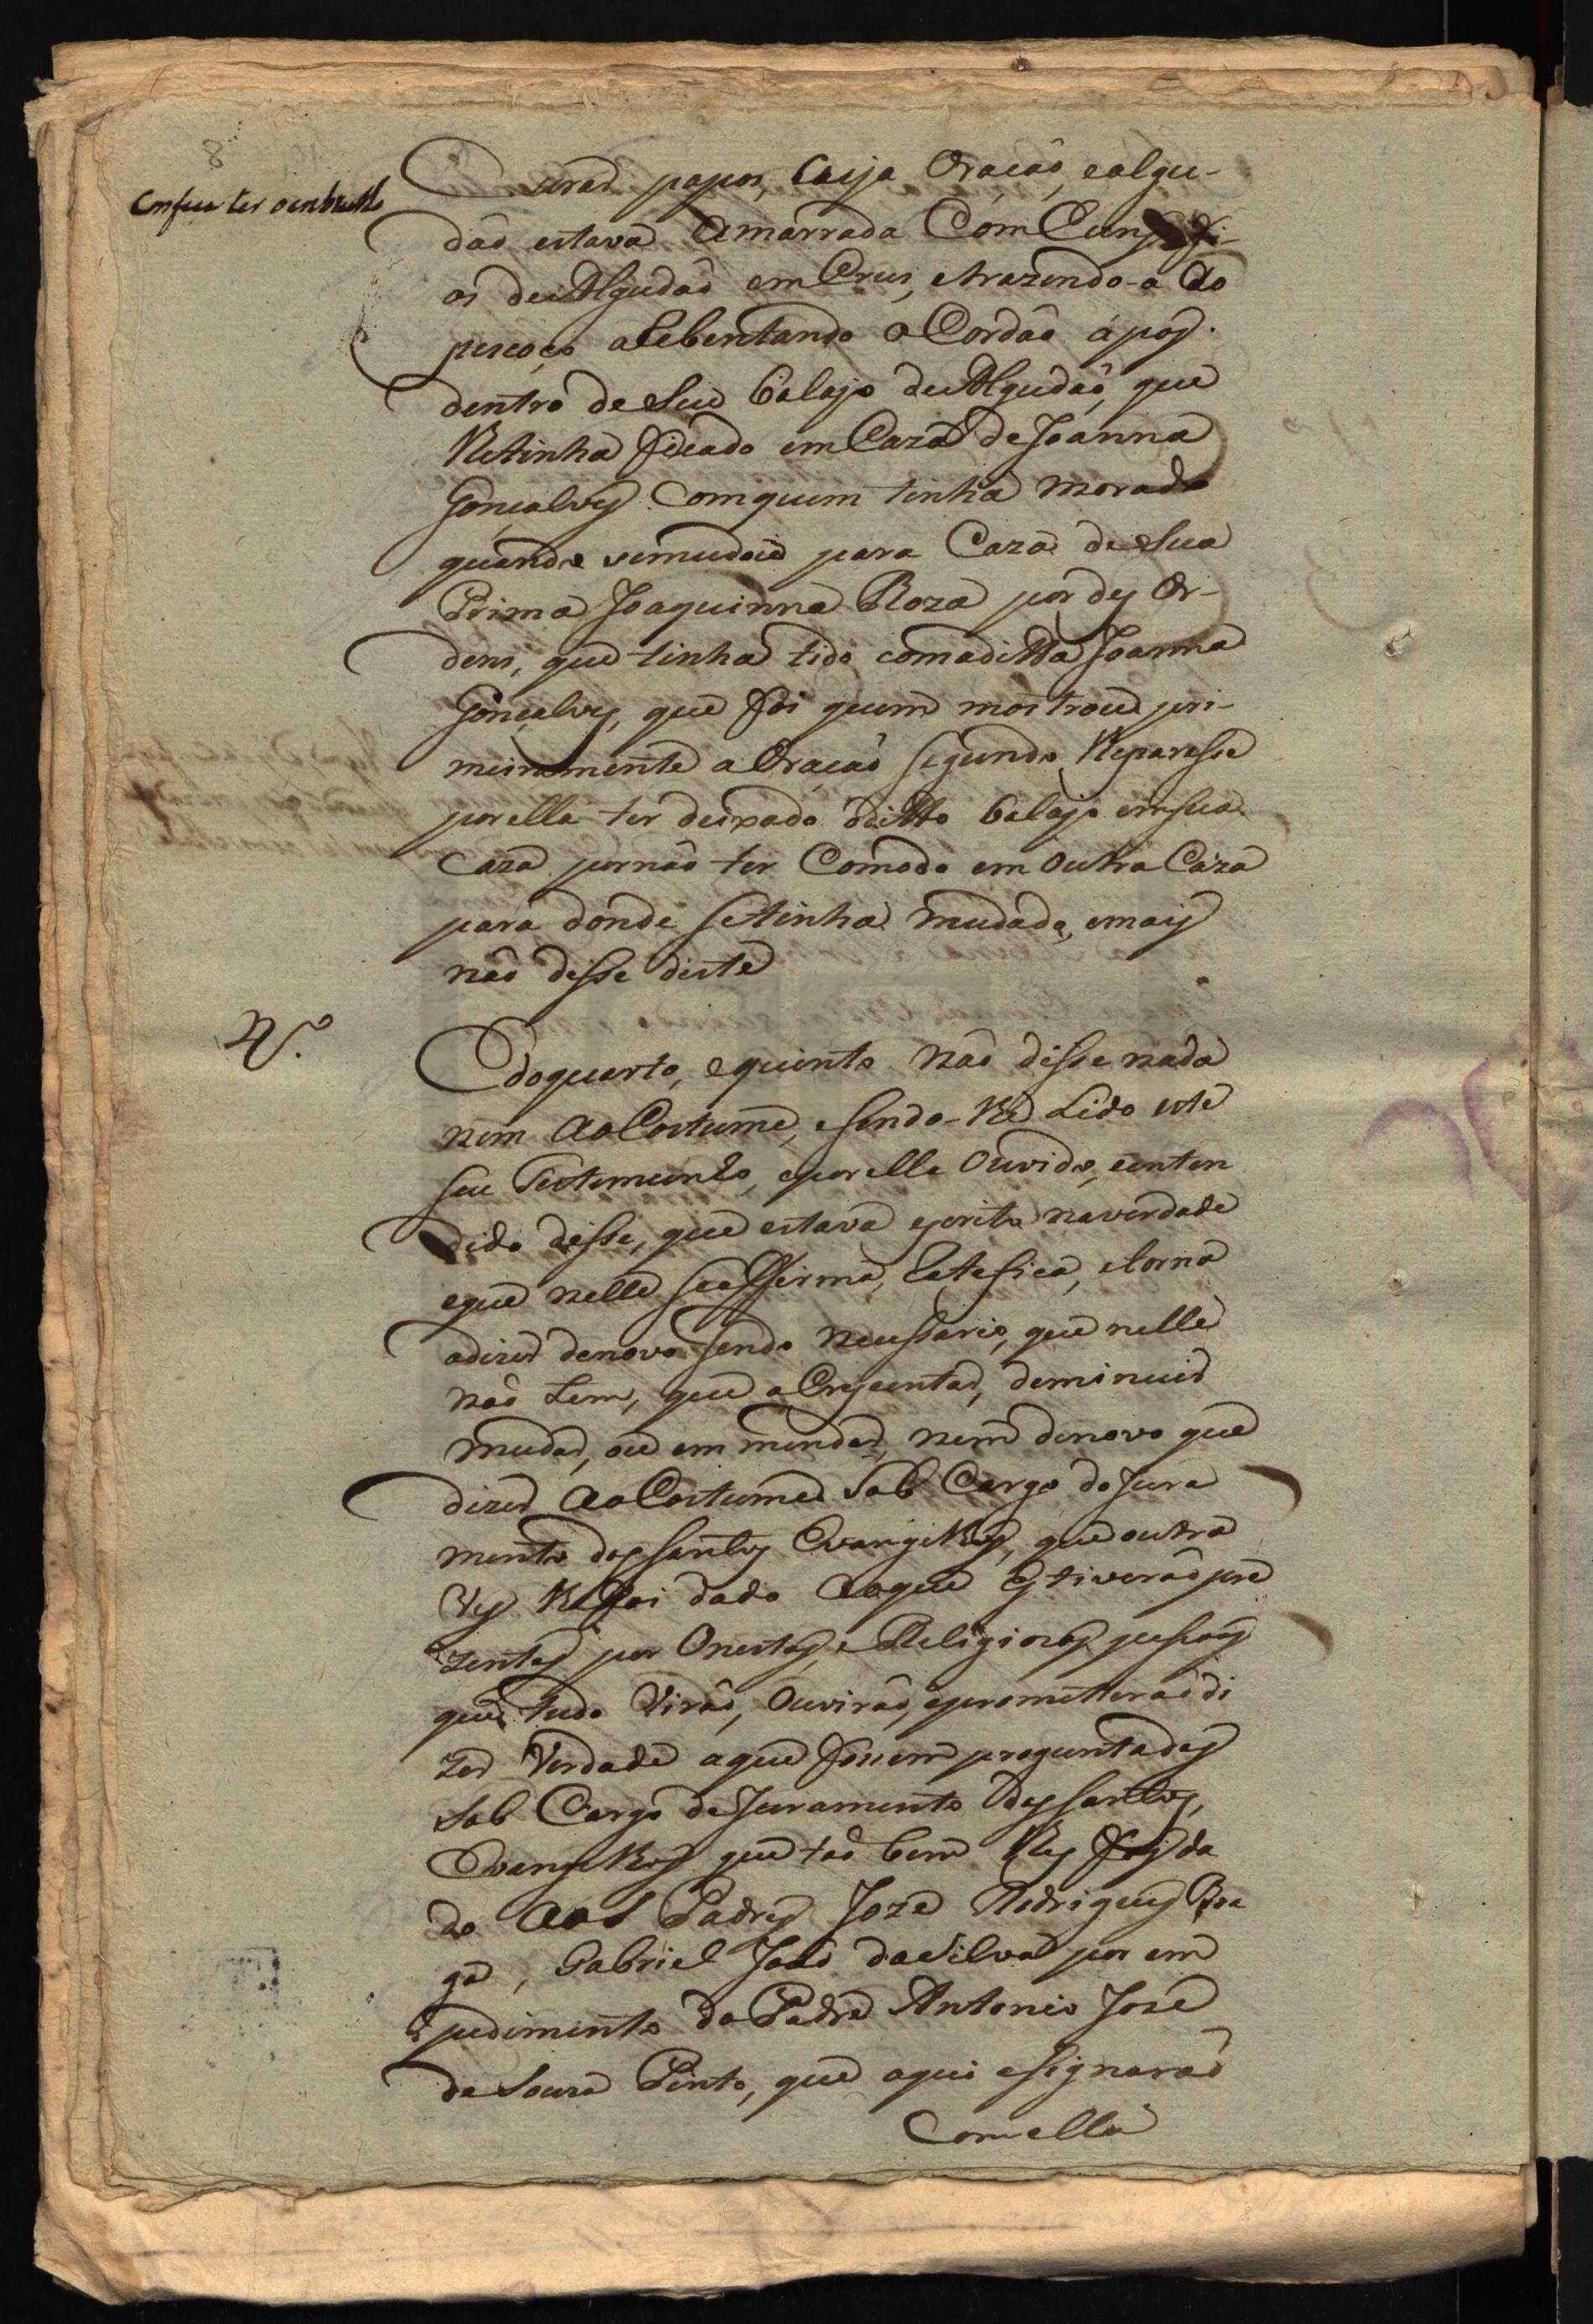 8
Confesa ter o embrulho
curar papos, cuja Oração, e algu-
dão estava Amarrada Com huns fi-
os de Algudão em Crus, e trazendo-a Ao
pescoço aRebentando o Cordão a pos
dentro de seu balajo de Algudão, que
lhe tinha ficado em Caza de Joanna
Gonçalves com quem tinha morado
quando se mudou para Caza de sua
Prima Joaquinna Roza por des Or-
dens, que tinha tido com a ditta Joanna
Gonçalves, que foi quem mostrou pri-
meiramente a Oração segundo lhe paresse
por ella ter deixado o ditto balajo em sua
Caza por não ter Comodo em outra Caza
para donde se tinha mudado, e mais
não disse deste
N.º
Do quarto, e quinto não disse nada
nem ao Costume, e sendo-lhe Lido este
seu Testemunho, e por ella Ouvido, e enten
dido disse, que estava escrito na verdade
e que nelle se afirma, Ratefica, e torna
a dizer de novo sendo necessario, que nelle
não tem, que aCrescentar, deminuir
mudar, ou emmendar, nem de novo que
dizer ao Costume sob Cargo do Jura
mento dos Santos Evangelhos, que outra
Ves lhe foi dado ao que Estiverão pre
zentes por Onestas, e Religiozas pessoas
que tudo Virão, Ouvirão, e prometterão di
zer Verdade a que fosem preguntados
sob Cargo de Juramento dos Santos,
Evangelhos que tão bem lhes foi da
do aos Padres Joze Rodrigues Bra
ga, Gabriel João da Silva por em
pedimento do Padre Antonio José
de Souza Pinto, que aqui asignarão
Com ella